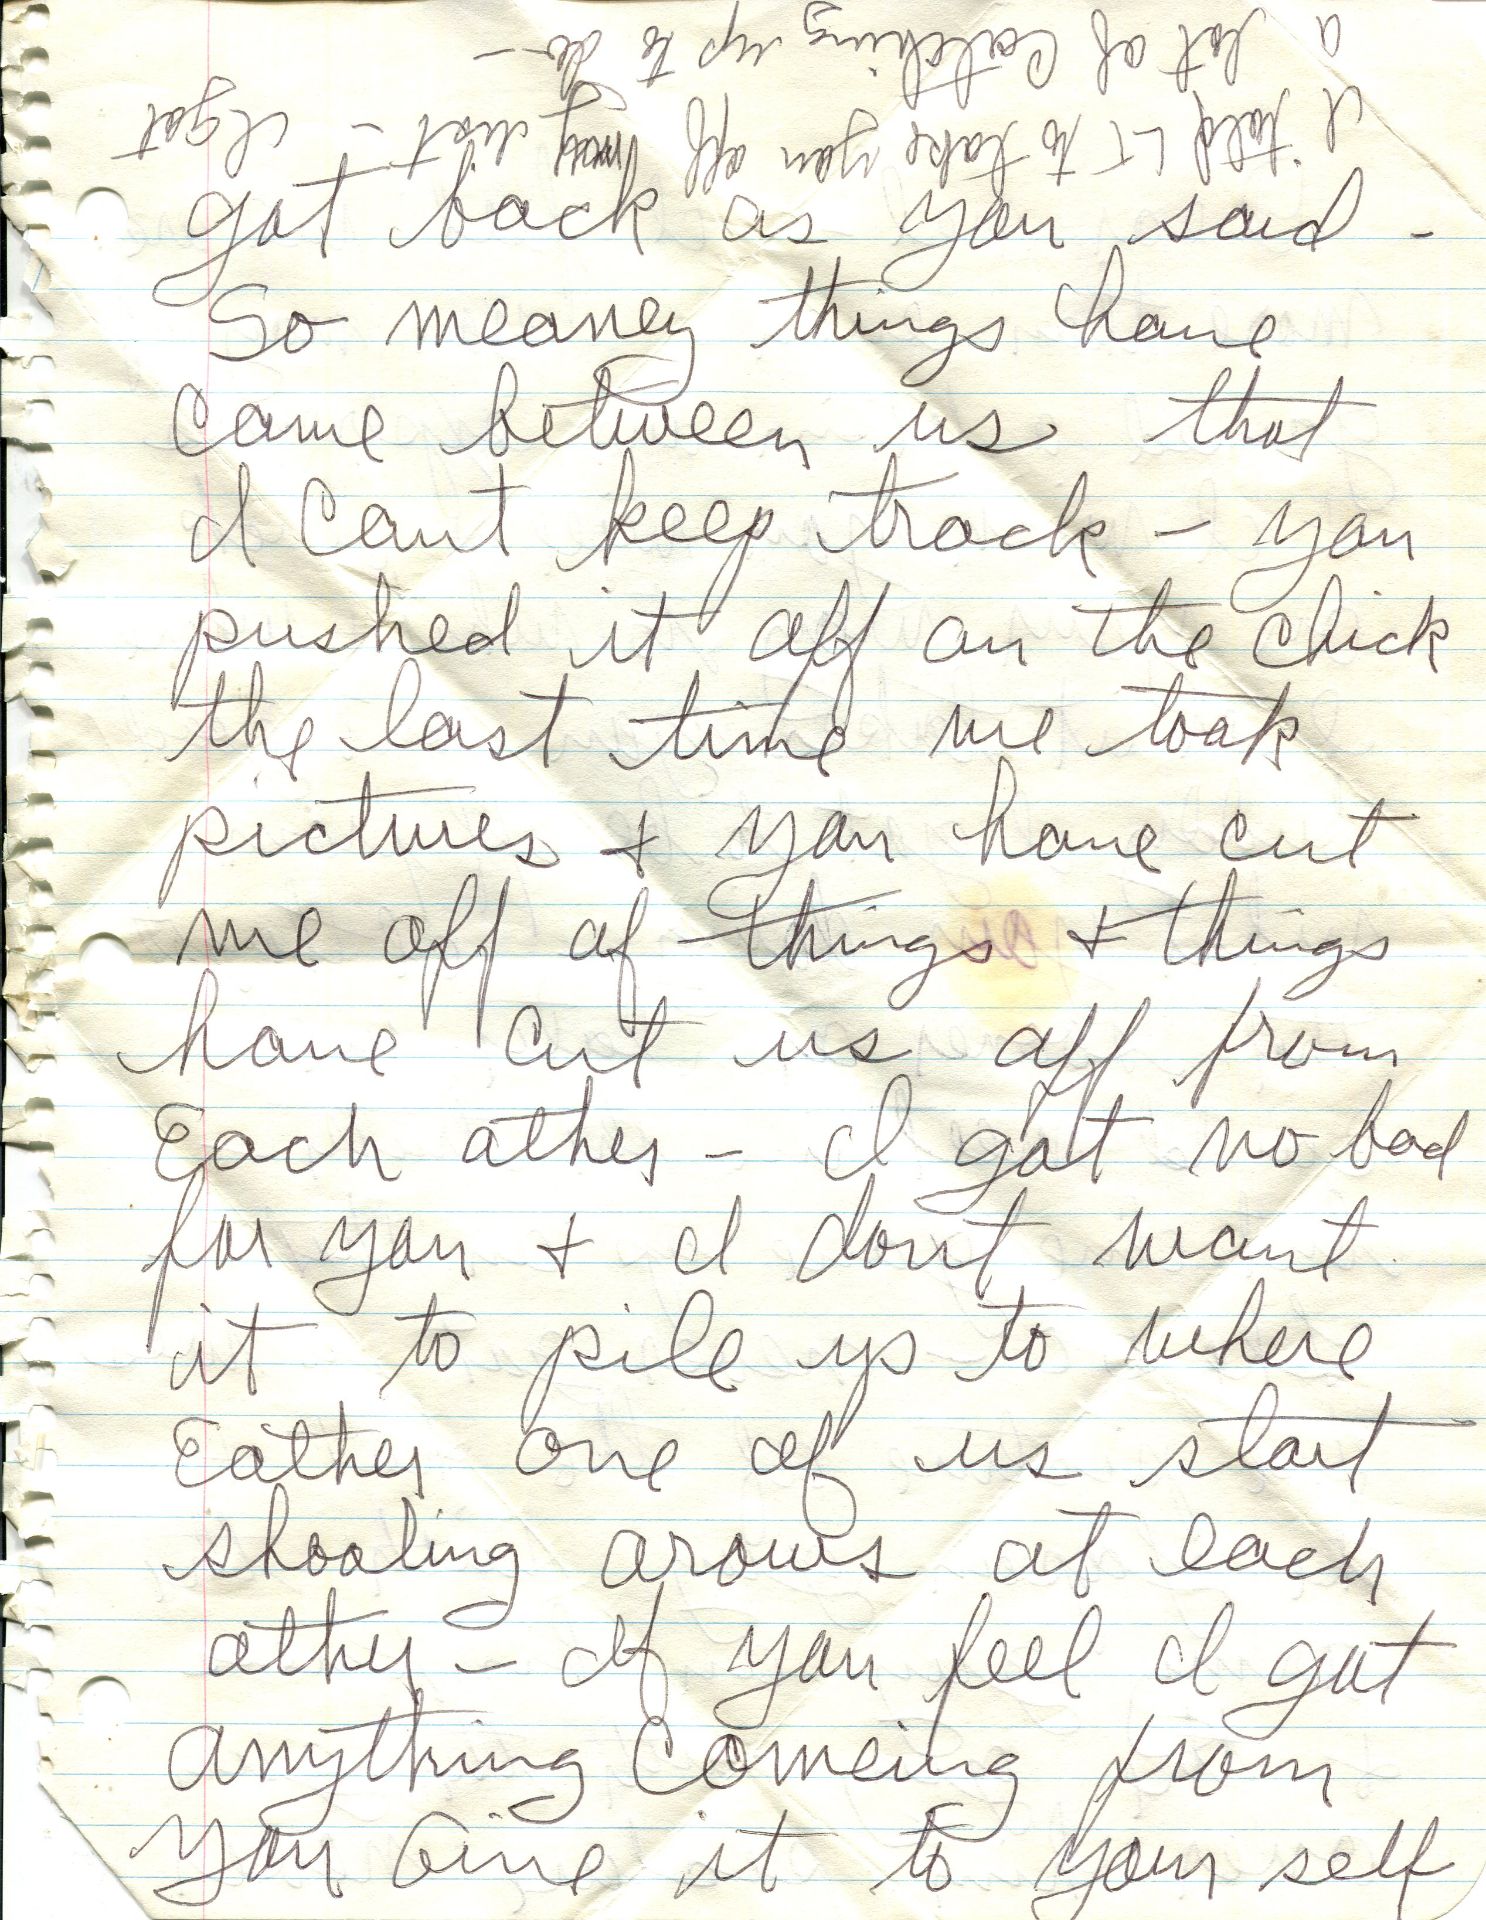 got back as you said -
So meaney things have
came between us that
I cant keep track - you
pushed it off on the chick
the last time we took
pictures + you have cut
me off of things + things
have cut us off from
Each other - I got no bad
for you + I dont want
it to pile up to where
Eather one of us start
shooting arows at each
other - If you feel I got
anything comeing from
you Give it to your self
I told LT to take you off my list - I got
a lot of catching up to do -